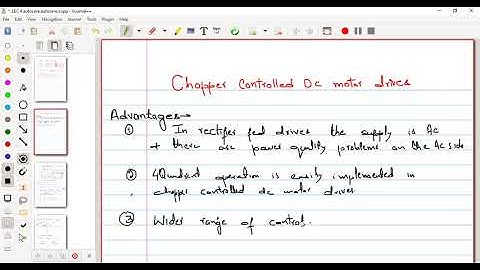 Journal Tools Plugin Help
Chopper Controlled Dc motor drives
Advantages→
① In rectifier fed drives the supply is Ac
+ there are power quality problems on the Ac side
② 4Quadrant operation is easily implemented in
chopper controlled dc motor drives.
③ Wider range of control.